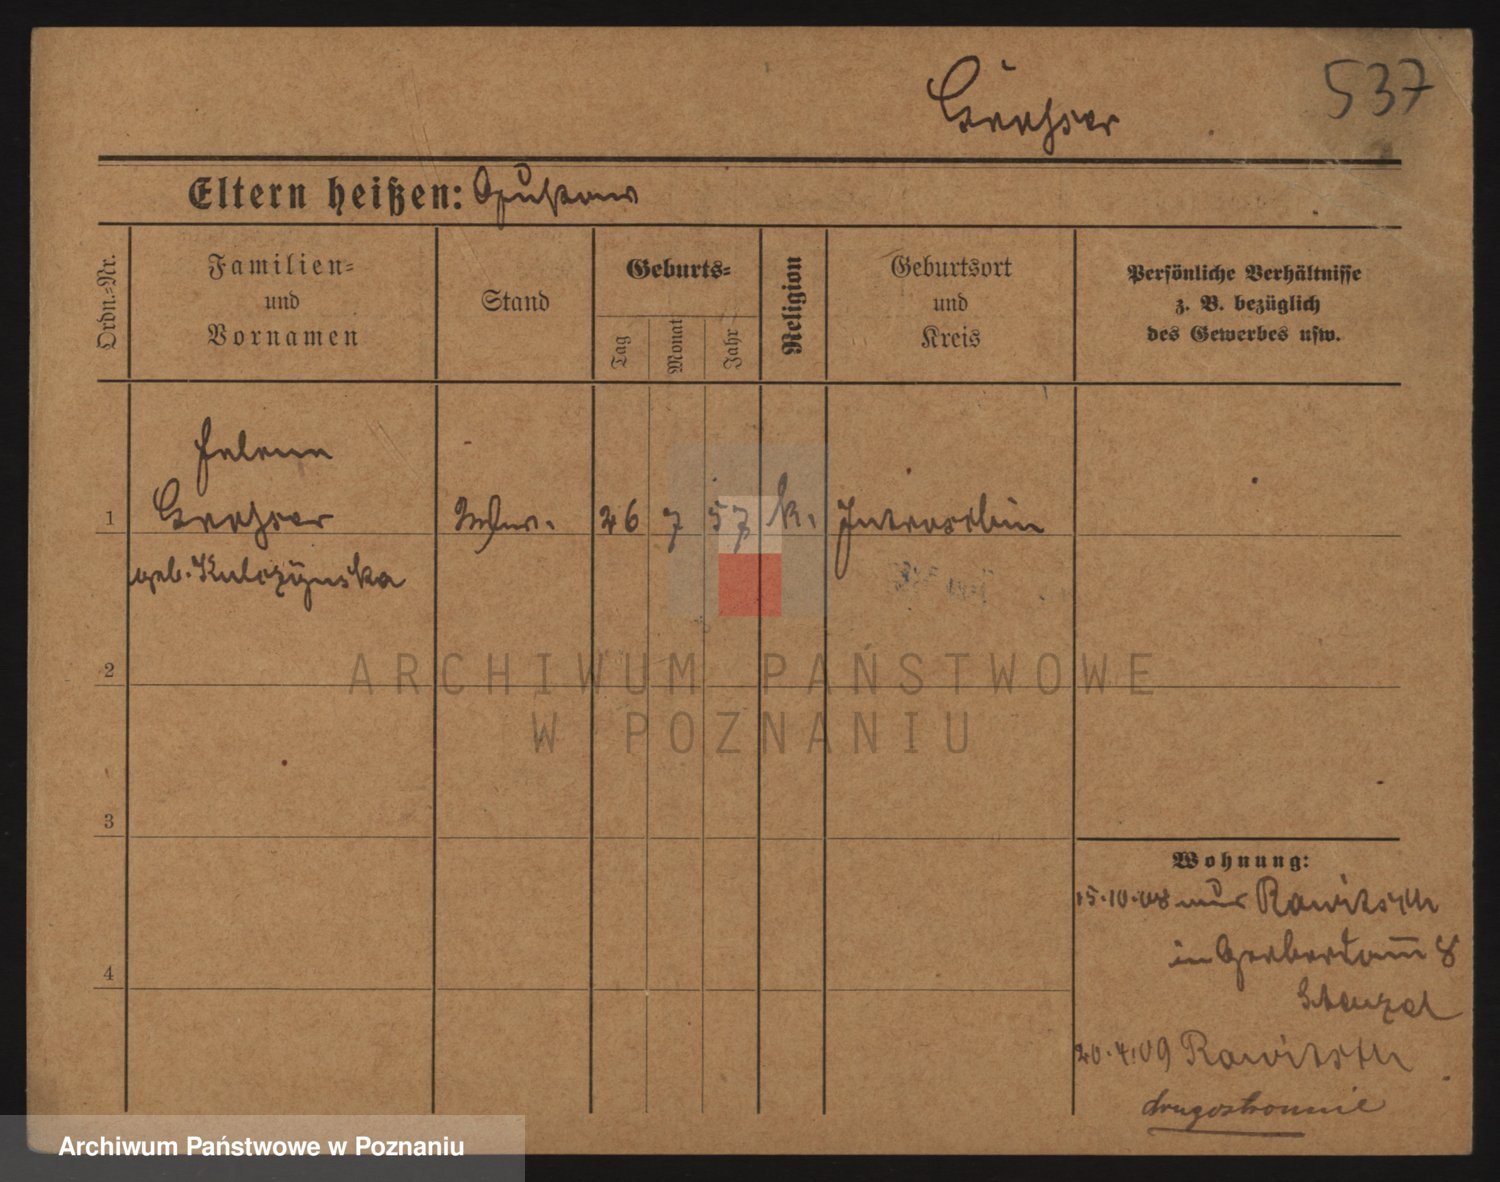 537
Eltern heißen:
Ordn.-Nr.
Familien-
und
Vornamen
Stand
Geburts-
Tag
Monat
Jahr
Religion
Geburtsort
und
Kreis
Persönliche Verhältnisse
z. B. bezüglich
des Gewerbes usw.
1
geb. Kulczynska
26
7
57
k.
Jutroschin
2
3
4
Wohnung:
15.10.08 Rawitsch
in 8
Stenzel
20.4.09 Rawitsch
drugostronnie
ARCHIWUM PAŃSTWOWE
W POZNANIU
Archiwum Państwowe w Poznaniu